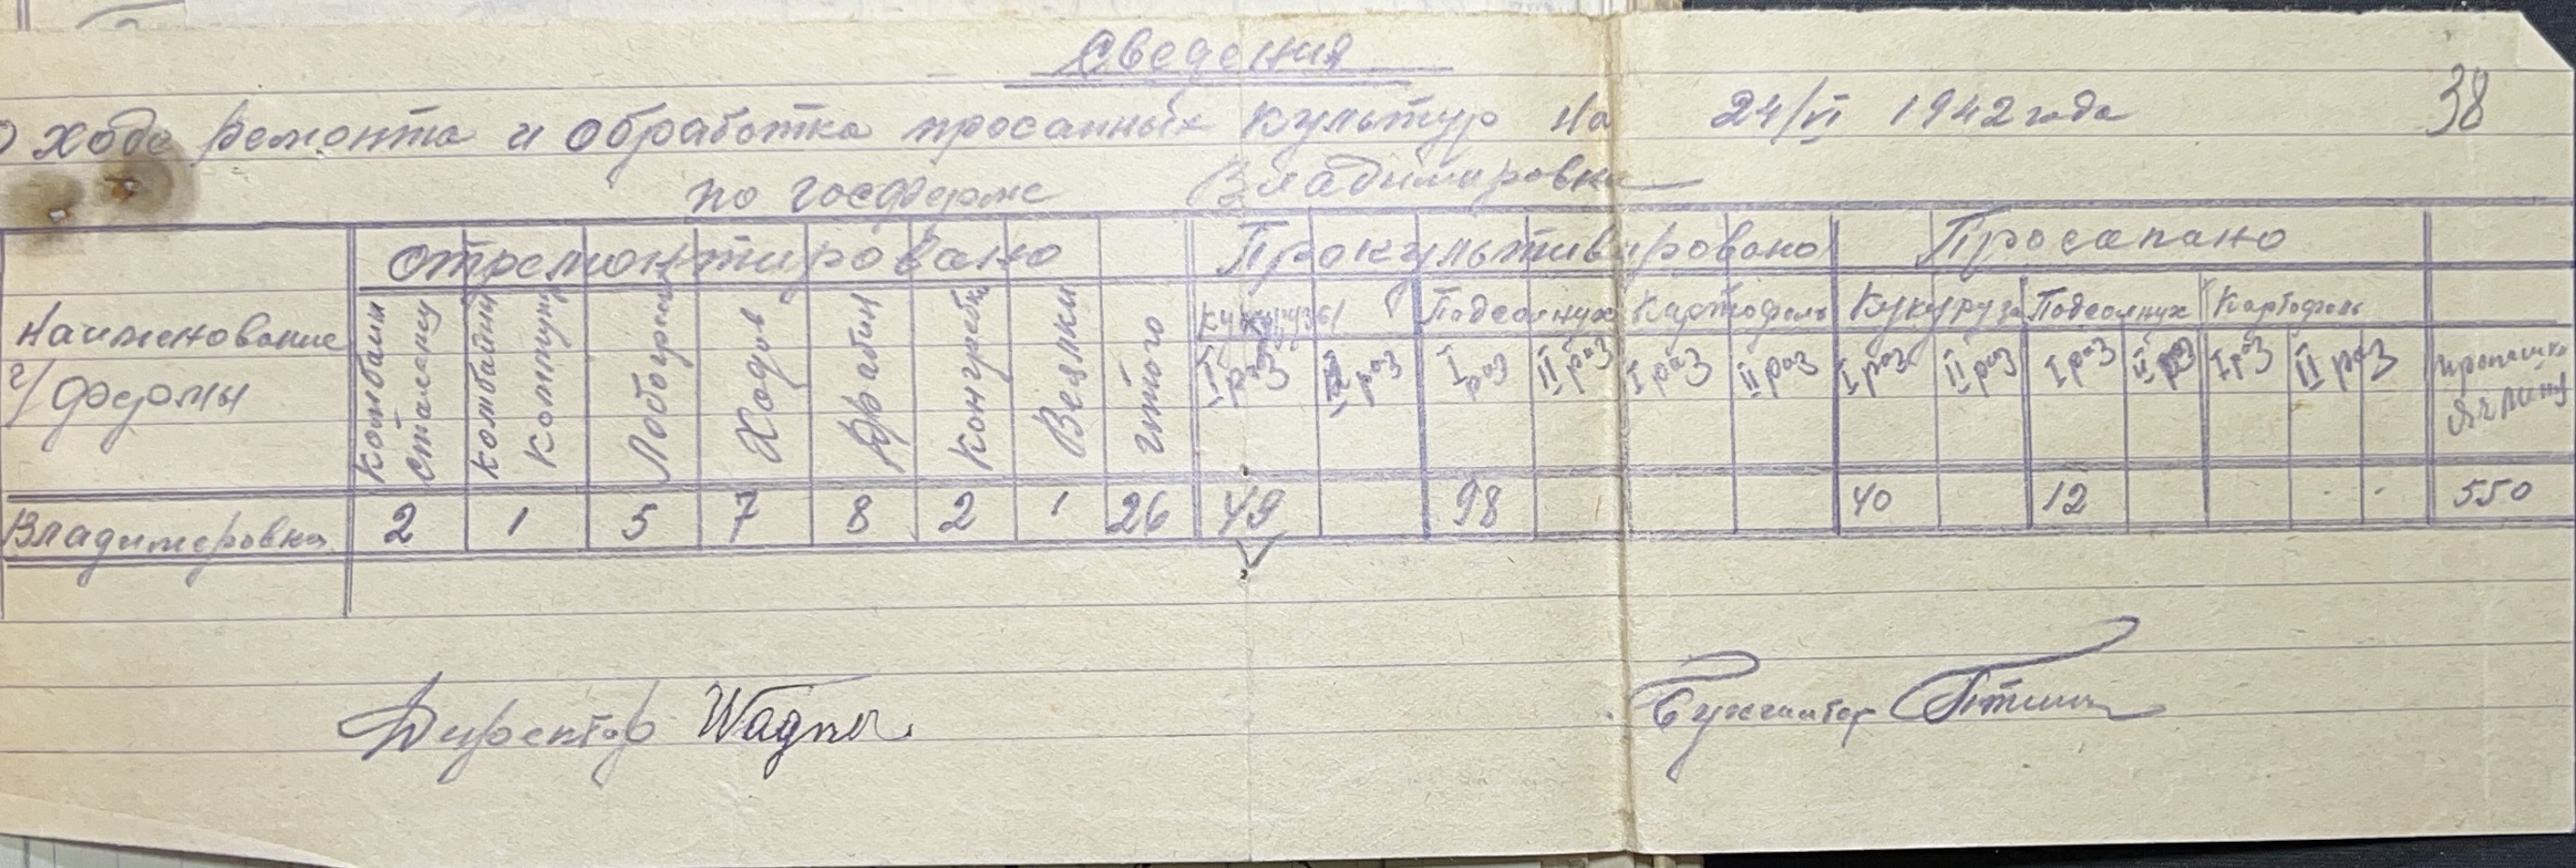 Сведения
О ходе ремонта и обработка просапных культур на 24/VI 1942 года
38
по госферме Владимировка
Наименование г/фермы
Отремонтировано
Прокультивировано
Просапано
Кукурузы Подсолнух Картофель Кукуруза Подсолнух Картофель
Комбайн сталинец
комбайн Коммунар
Лобогреек
Ходов
Драбин
Конгребл
Веялки
итого
I раз II раз I раз II раз I раз II раз I раз II раз I раз II раз I раз II раз
прополка ячменя
Владимировка 2 1 5 7 8 2 1 26 49 98 40 12 550
Директор Wagner
Бухгалтер